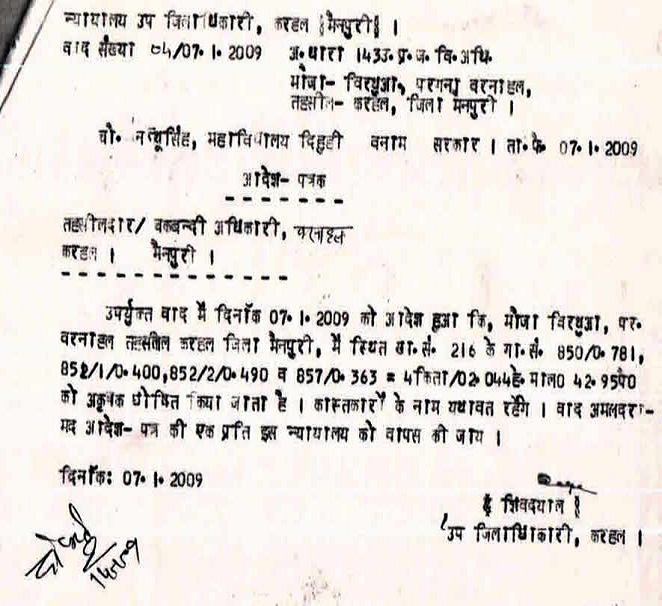 न्यायालय उप जिलाधिकारी, करहल ‌{मैनपुरी} ।
वाद संख्या 04/07.1.2009 अ.धारा 143उ.प्र.ज.वि.अधि.
मौजा- विरथुआ, परगना वरनाहल,
तहसील- करहल, जिला मैनपुरी ।
चौ. नत्थूसिंह, महाविद्यालय दिहुली वनाम सरकार । ता.फै. 07.1.2009
आदेश- पत्रक
तहसीलदार/ चकबन्दी अधिकारी, वरनाहल
करहल । मैनपुरी ।
उपर्युक्त वाद में दिनाँक 07.1.2009 को आदेश हुआ कि, मौजा विरथुआ, पर.
वरनाहल तहसील करहल जिला मैनपुरी, में स्थित खा.सं. 216 के गा.सं. 850/0.781,
852/1/0.400,852/2/0.490 व 857/0.363 = 4किता/02.044हे. मा0 42.95पै0
को अकृषक घोषित किया जाता है । कास्तकारों के नाम यथावत रहेंगे । वाद अमलदरा-
मद आदेश- पत्र की एक प्रति इस न्यायालय को वापस की जाय ।
दिनाँक: 07.1.2009
{ शिवदयाल }
उप जिलाधिकारी, करहल ।